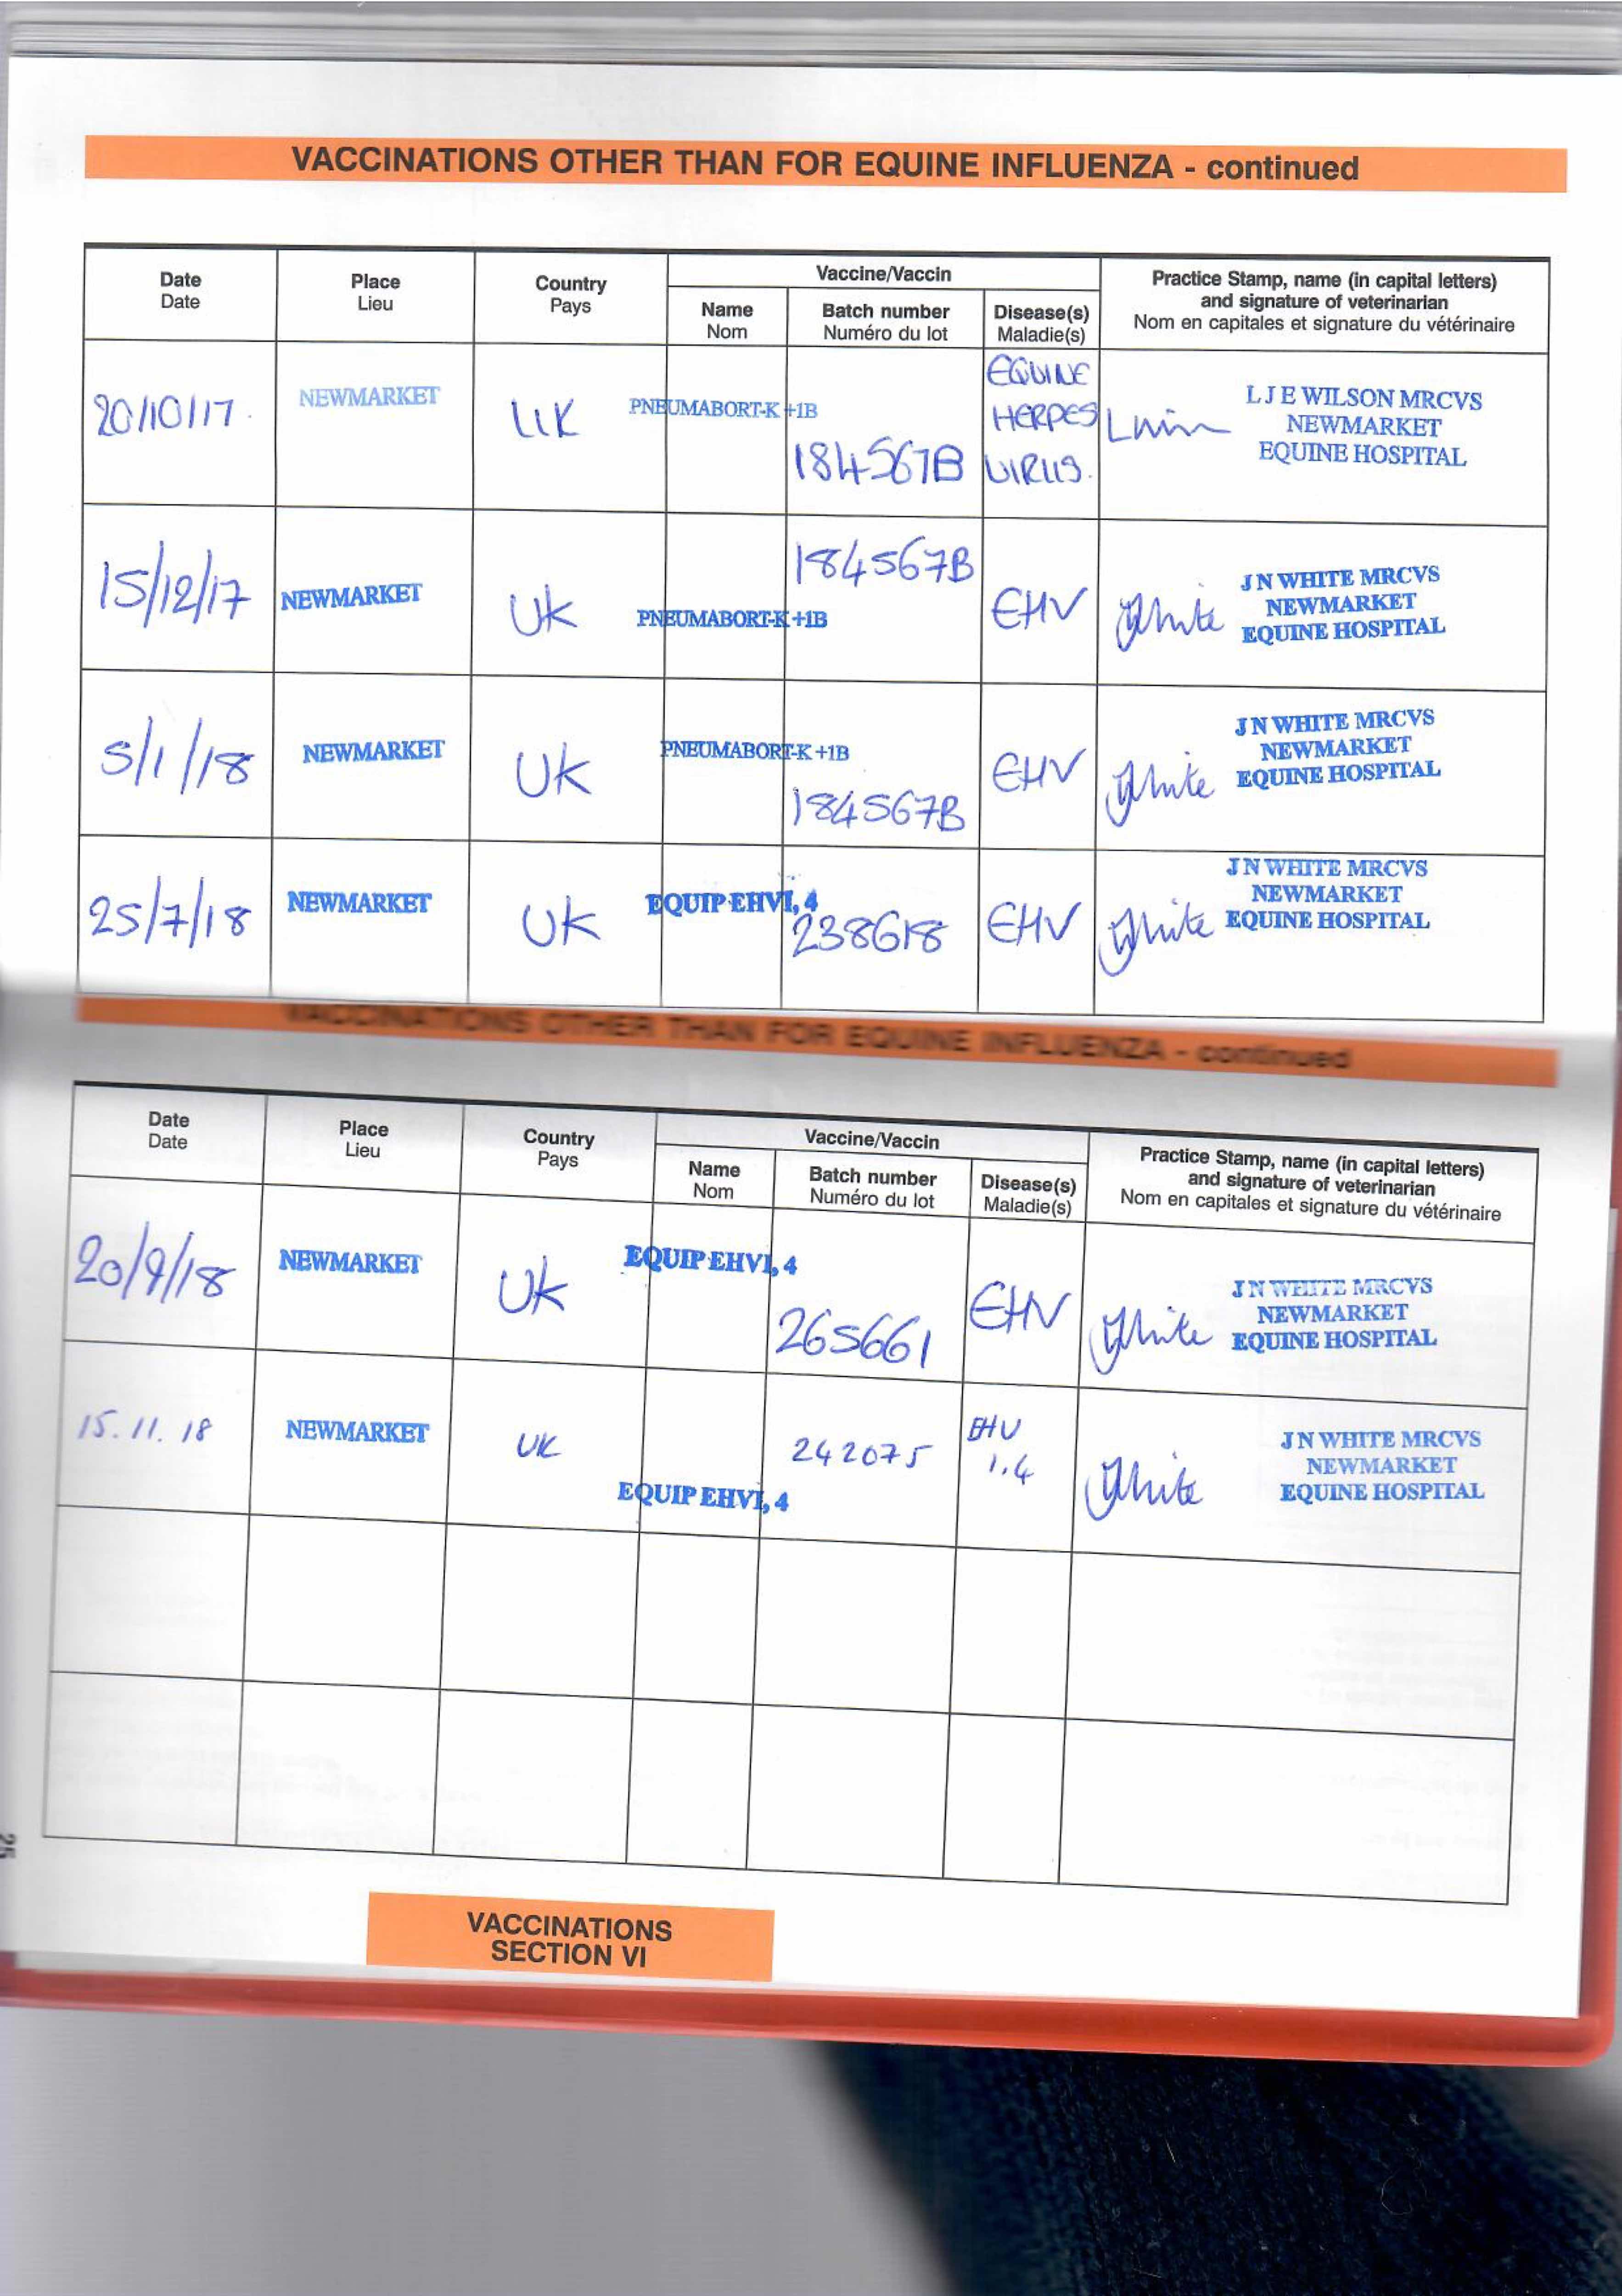 VACCINATIONS OTHER THAN FOR EQUINE INFLUENZA - continued
Date
Date
Place
Lieu
Country
Pays
Vaccine/Vaccin
Name
Nom
Batch number
Numéro du lot
Disease(s)
Maladie(s)
Practice Stamp, name (in capital letters)
and signature of veterinarian
Nom en capitales et signature du vétérinaire
20/10/17
NEWMARKET
UK
PNEUMABORT-K +1B
184567B
EQUINE
HERPES
VIRUS.
L J E WILSON MRCVS
NEWMARKET
EQUINE HOSPITAL
15/12/17
NEWMARKET
UK
PNEUMABORT-K +1B
184567B
EHV
JWhite
J N WHITE MRCVS
NEWMARKET
EQUINE HOSPITAL
5/1/18
NEWMARKET
UK
PNEUMABORT-K +1B
184567B
EHV
JWhite
J N WHITE MRCVS
NEWMARKET
EQUINE HOSPITAL
25/7/18
NEWMARKET
UK
EQUIP EHV1, 4
EHV
JWhite
J N WHITE MRCVS
NEWMARKET
EQUINE HOSPITAL
VACCINATIONS OTHER THAN FOR EQUINE INFLUENZA - continued
Date
Date
Place
Lieu
Country
Pays
Vaccine/Vaccin
Name
Nom
Batch number
Numéro du lot
Disease(s)
Maladie(s)
Practice Stamp, name (in capital letters)
and signature of veterinarian
Nom en capitales et signature du vétérinaire
20/9/18
NEWMARKET
UK
EQUIP EHV1, 4
265661
EHV
JWhite
J N WHITE MRCVS
NEWMARKET
EQUINE HOSPITAL
15.11.18
NEWMARKET
UK
EQUIP EHV1, 4
242075
EHV
1.4
JWhite
J N WHITE MRCVS
NEWMARKET
EQUINE HOSPITAL
25
VACCINATIONS
SECTION VI